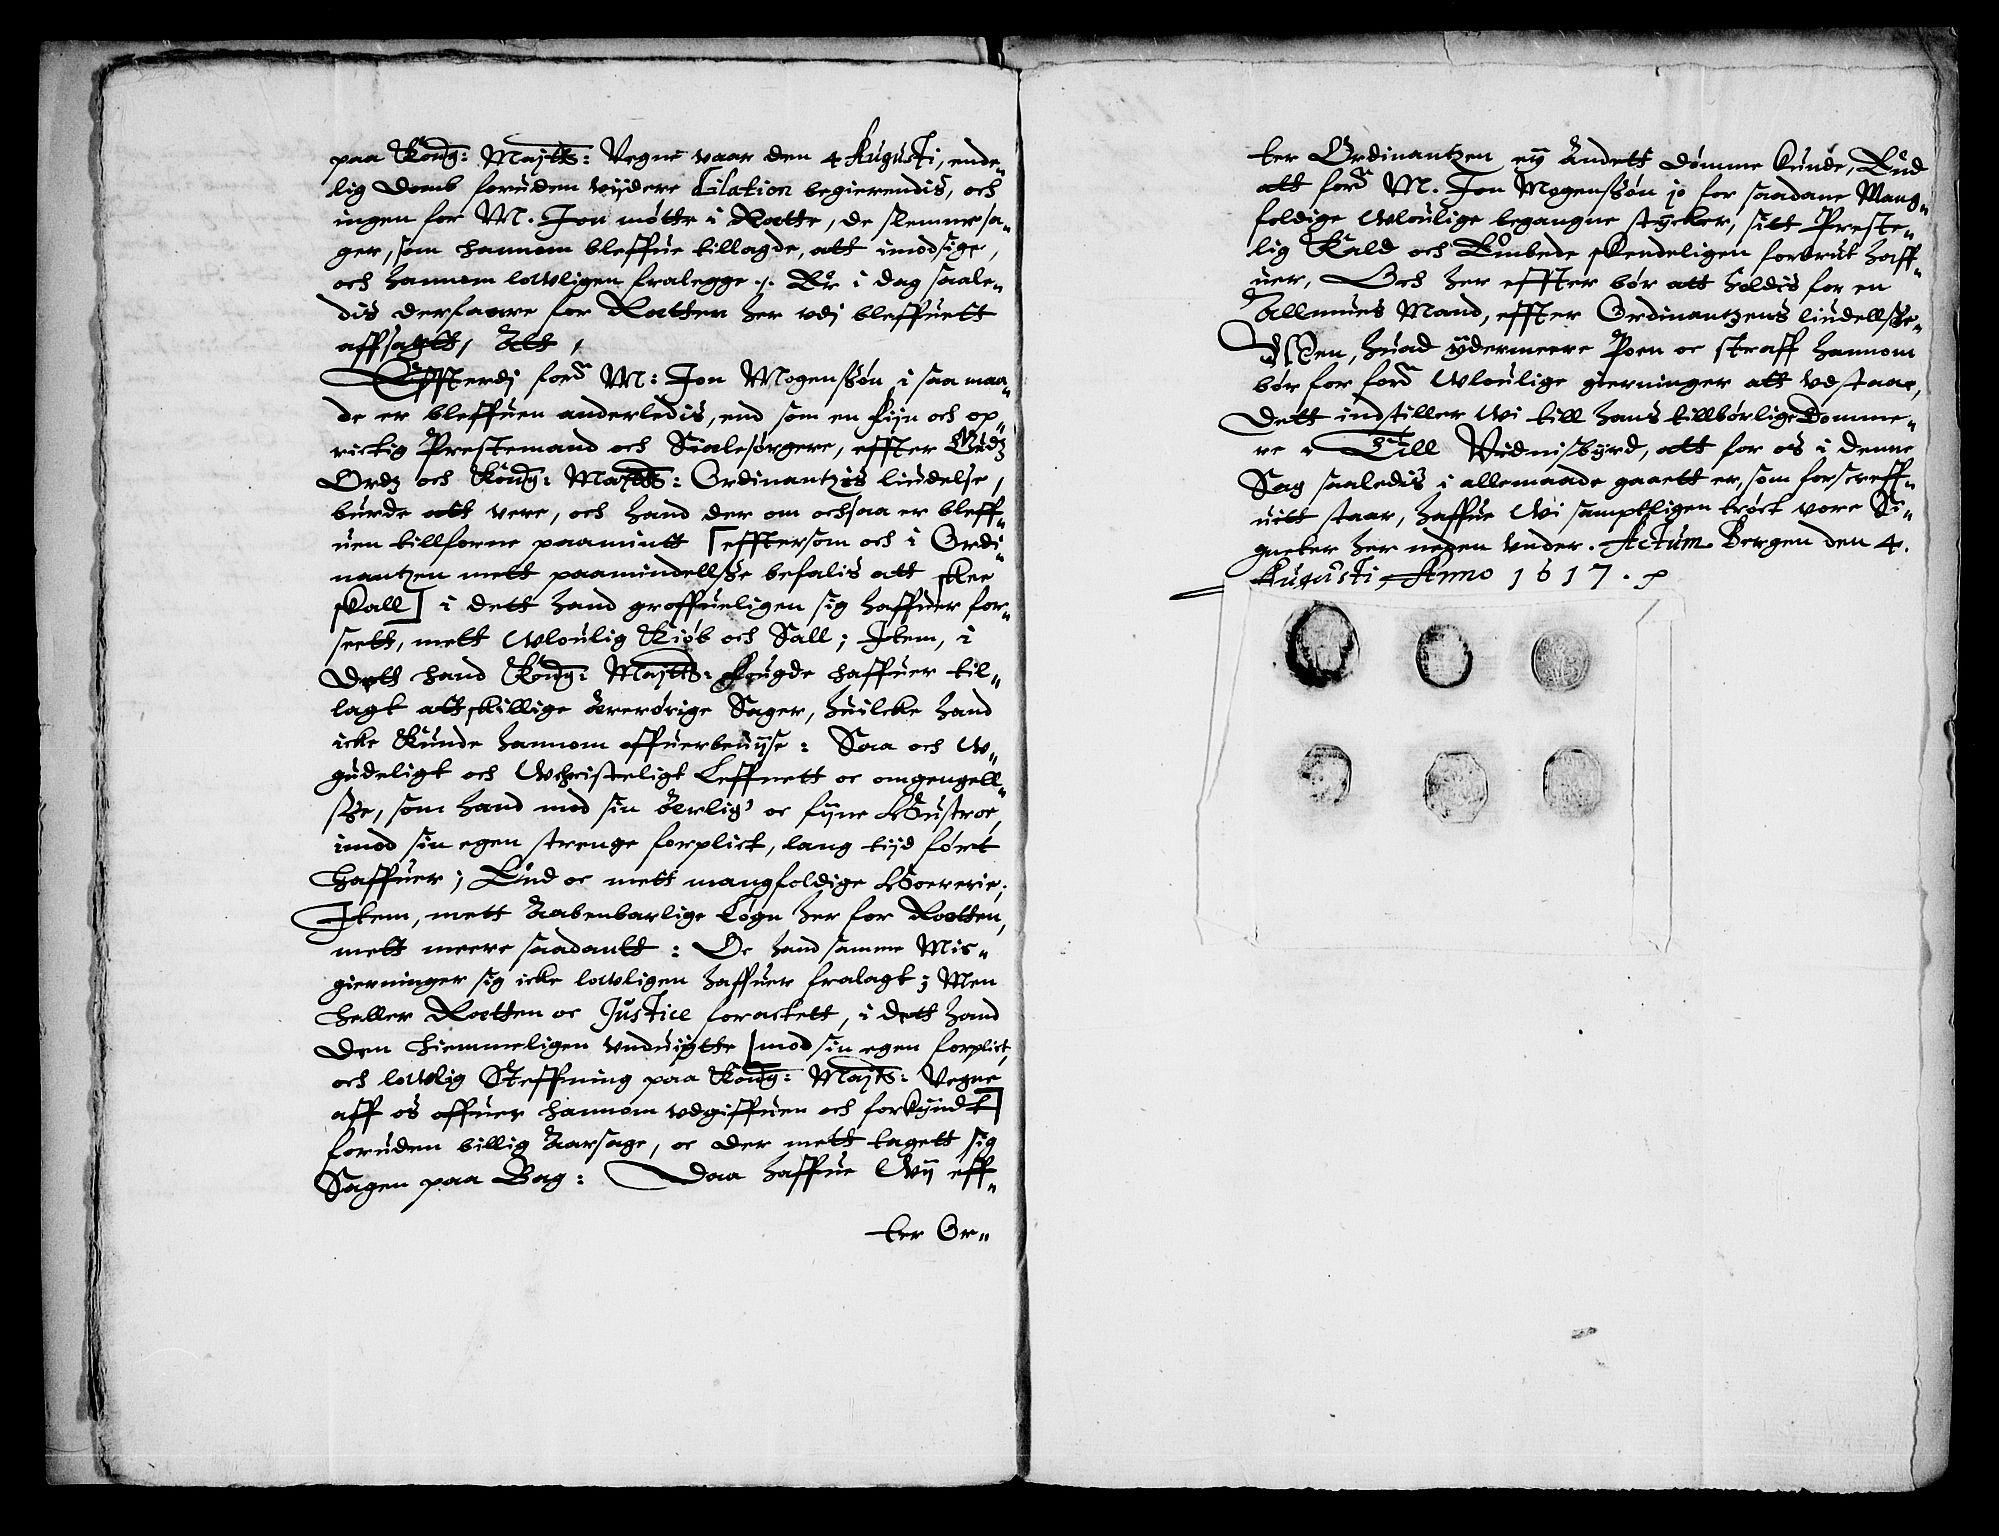 paa Kong: Majtts: Vegne vaar den 4 Augusti, ende„
lig Domb foruden vijdere Dilation begierendis, och
ingen for M. Jon møtte i Rætte, de slemme sa„
ger, som hannom bleffue tillagde, att imodsige,
och hannom lowligen fralegge ./. Er i dag saale„
dis derfaare for Rætten her vdj bleffuett
affsagtt, Att,
Effterdj ford M: Jon Mogenssøn i saa maa„
de er bleffuen anderledis, end som en fijn och op„
rictig Prestemand och Sialesørgere, effter Gudz
Ordz och Kong: Majtts: Ordinantzis liudelse,
burde att vere, och hand der om ochsaa er bleff„
uen tillforne paamintt [efftersom och i Ordi„
nantzen mett paamindellsße befalis att skee
skall] i dett hand groffueligen sig haffuer for„
seett, mett Wloulig Kiøb och Sall; Item, i
Dett hand Kong: Majtts: Fougde haffuer til„
lagt attskillige ærerørige Sager, huilcke hand
icke Kunde hannom offuerbeuijse: Saa och W„
gudeligt och Wchristeligt Leffnett oc omgengell„
sße, som hand mod sin ærlig oc fijne Høstroe,
imod sin egen strenge forplict, lang tijd ført
haffuer; End oc mett mangfoldige Hoererie;
Item, mett Aabenbarlige Løgn her for Rætten,
mett meere saadantt: Oc hand samme Mis„
gierninger sig icke lowligen haffuer fralagt; Men
heller Rætten oc Justice foractett, i dett hand
Den hiemmeligen vnduigtte [mod sin egen forplict,
och lowlig Steffning paa Kong: Majtts: Vegne
aff os offuer hannom vdgiffuen och forkyndt]
foruden billig Aarsage, oc der mett tagett sig
Sagen paa Bag: Daa haffue Wij eff„
ter Or„
ter Ordinantzen eij Andett dømme Kunde, End
att ford M. Jon Mogenssøn jo for saadane Mang„
foldige Wloulige begangne stycker, sitt Preste„
lig Kald och Embede skendeligen forbrut haff„
uer, Och her effter bør att holdis for en
Allmues Mand, effter Ordinantzens liudellsße.
Men, huad ydermeere Poen oc straff hannom
bør for ford Wloulige gierninger att vdstaae,
Dett indstiller Wi till hans tillbørlige Domme„
re. Till Vidnisbyrd, att for os i denne
Sag saaledis i allemaade gaaett er, som forscreff„
uitt staar, haffue Wi samptligen tröct vore Si„
gneter her neden vnder. Actum Bergen den 4.
Augusti Anno 1617.